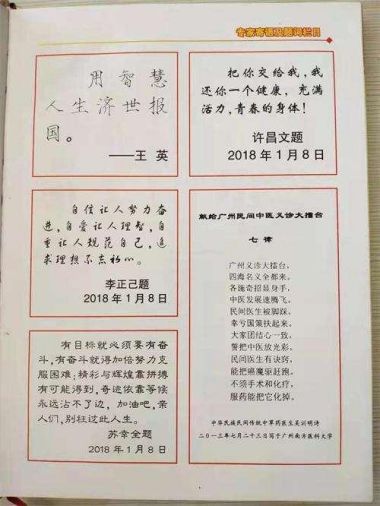 专家寄语及题词栏目
用智慧
人生济世报
国。
——王 英
把你交给我，我
还你一个健康，充满
活力，青春的身体！
许昌文题
2018年1月8日
自信让人努力奋
进，自爱让人理智，自
重让人规范自己，追
求理想不忘初心。
李正己题
2018年1月8日
献给广州民间中医义诊大擂台
七律
广州义诊大擂台，
四海名义全都来。
各施奇招显身手，
中医发展速腾飞。
民间医生被脚踩，
幸亏国策扶起来。
大家团结心一致，
誓把中医放光彩。
民间医生有诀窍，
能把癌魔驱赶跑。
不须手术和化疗，
服药能把它化掉。
中华民族民间传统中草药医生吴训明诗
二〇一三年七月二十三日写于广州南方医科大学
有目标就必须要有奋
斗，有奋斗就得加倍努力克
服困难；精彩与辉煌靠拼搏
有可能得到，奇迹依靠等候
永远沾不了边，加油吧，亲
人们，别枉过此人生。
苏幸全题
2018年1月8日